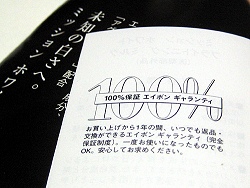 未知の白さへ。
ミッション ホワ
100%
100%保証 エイボン ギャランティ
お買い上げから1年の間、いつでも返品・
交換ができるエイボン ギャランティ（完全
保証制度）。一度お使いになったものでも
OK。安心してお求めください。